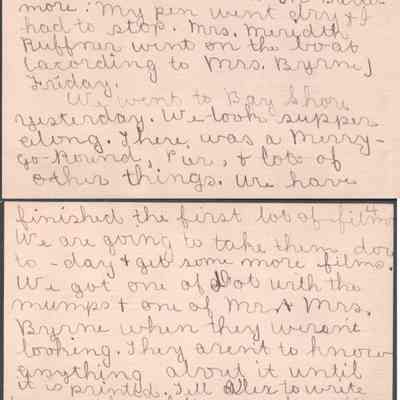 more. My pen went dry &
had to stop. Mrs. Meredith
Ruffner went on the boat
(according to Mrs. Byrne)
Friday.
We went to Bay Shore
yesterday. We took supper
along. There was a Merry-
Go-Round, Pier, & lots of
other things. We have
4
finished the first lot of films
We are going to take them down
to-day & get some more films.
We got one of Dot with the
mumps & one of Mr. & Mrs.
Byrne when they weren't
looking. They arent to know
anything about it until
it is printed. Tell Alex to write